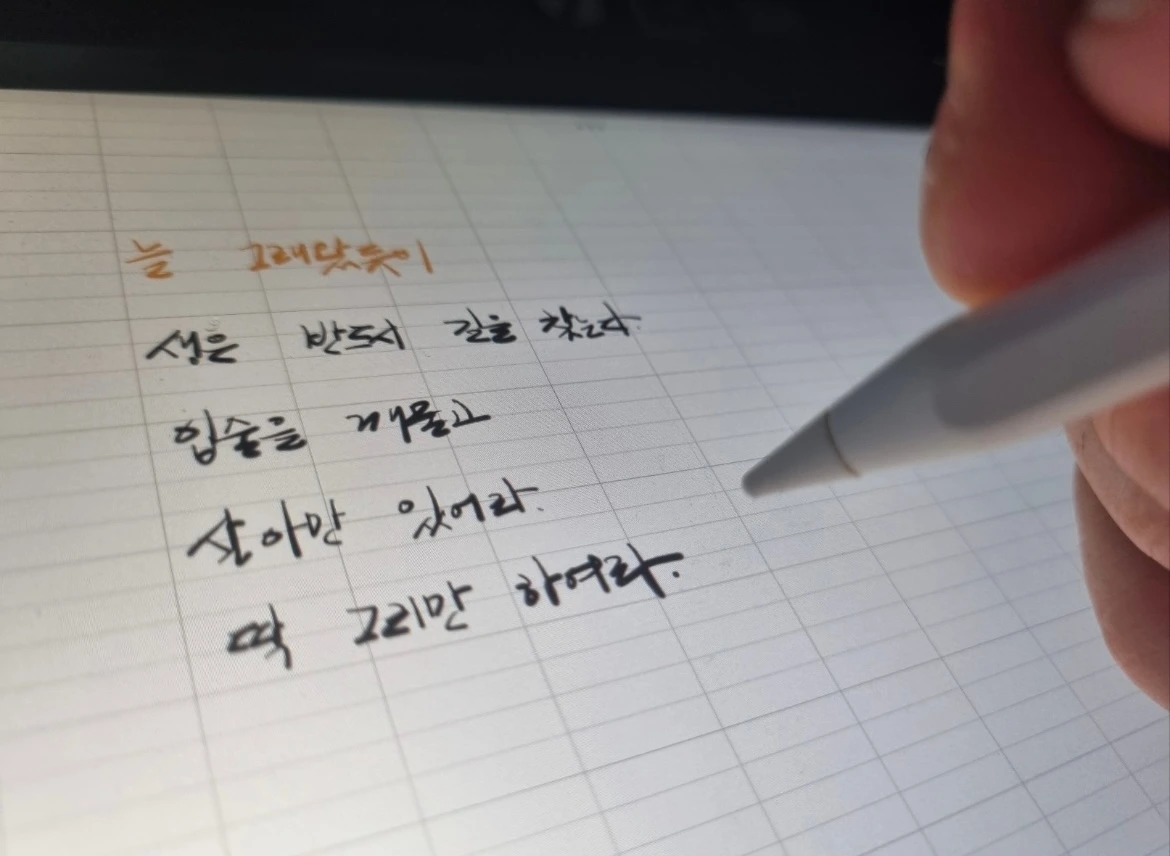 늘 그래왔듯이
생은 반드시 길을 찾는다.
입술을 깨물고
살아만 있어라.
딱 그리만 하여라.